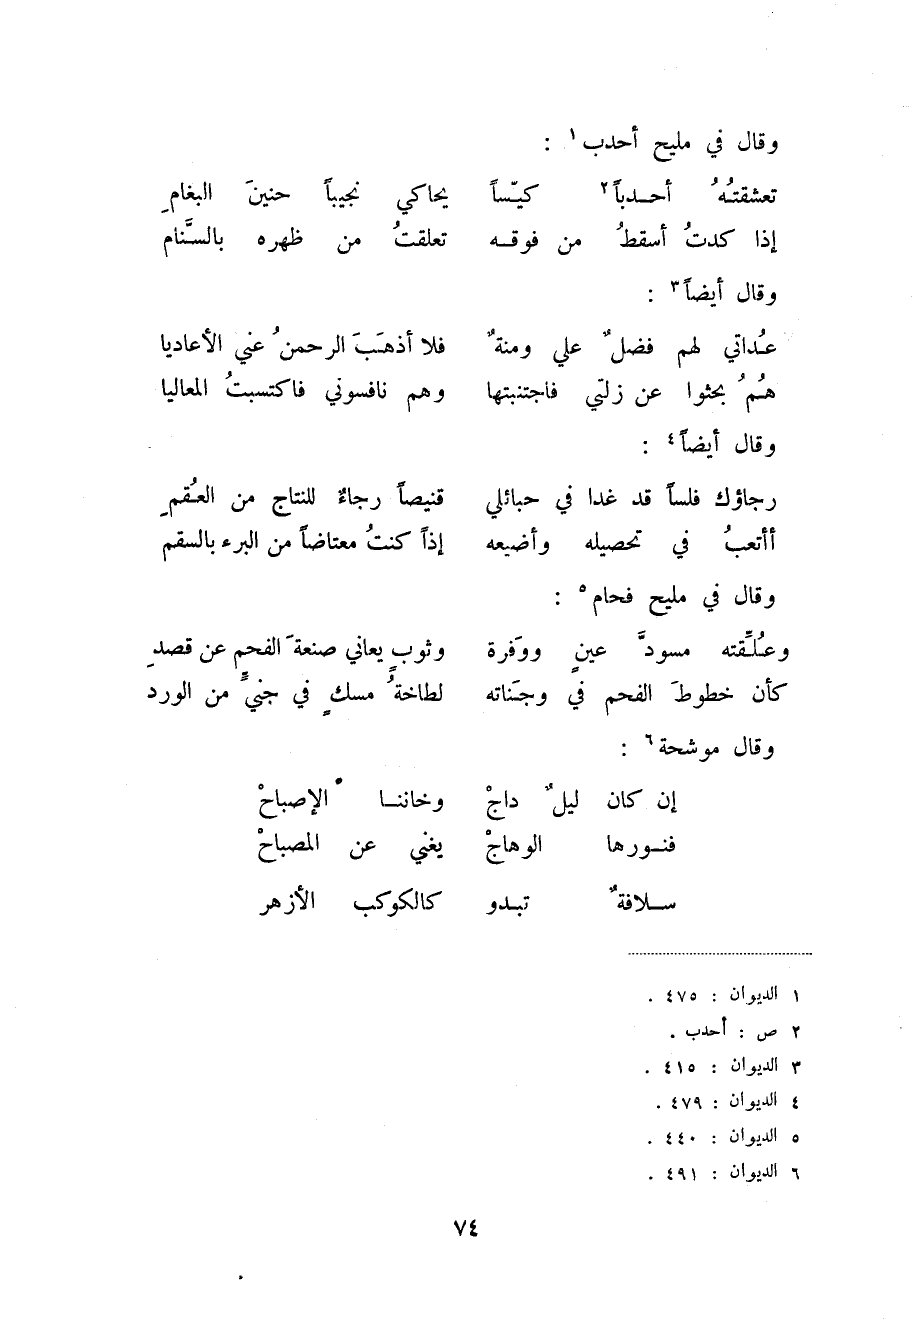 وقال في مليح أحدب١ :
تعشقتُهُ أحدباً٢ كيّساً يحاكي نجيباً حنينَ البغامِ
إذا كدتُ أسقطُ من فوقه تعلقتُ من ظهره بالسَّنام
وقال أيضاً٣ :
عُداتي لهم فضلٌ علي ومنةٌ فلا أذهَبَ الرحمنُ عني الأعاديا
هُمُ بحثوا عن زلّتي فاجتنبتها وهم نافسوني فاكتسبتُ المعاليا
وقال أيضاً٤ :
رجاؤك فلساً قد غدا في حبائلي قنيصاً رجاءٌ للنتاج من العُقمِ
أأتعبُ في تحصيله وأضيعه إذاً كنتُ معتاضاً من البرء بالسقم
وقال في مليح فحام٥ :
وعُلِّقته مسودَّ عينٍ ووَفرة وثوبٍ يعاني صنعةَ الفحمِ عن قصدِ
كأن خطوطَ الفحم في وجَناته لطاخةُ مسكٍ في جنيٍّ من الورد
وقال موشحة٦ :
إن كان ليلٌ داجْ وخاننا الإصباحْ
فنورها الوهاجْ يغني عن المصباحْ
سلافةٌ تبدو كالكوكب الأزهر
١ الديوان : ٤٧٥ .
٢ ص : أحدب .
٣ الديوان : ٤١٥ .
٤ الديوان : ٤٧٩ .
٥ الديوان : ٤٤٠ .
٦ الديوان : ٤٩١ .
٧٤